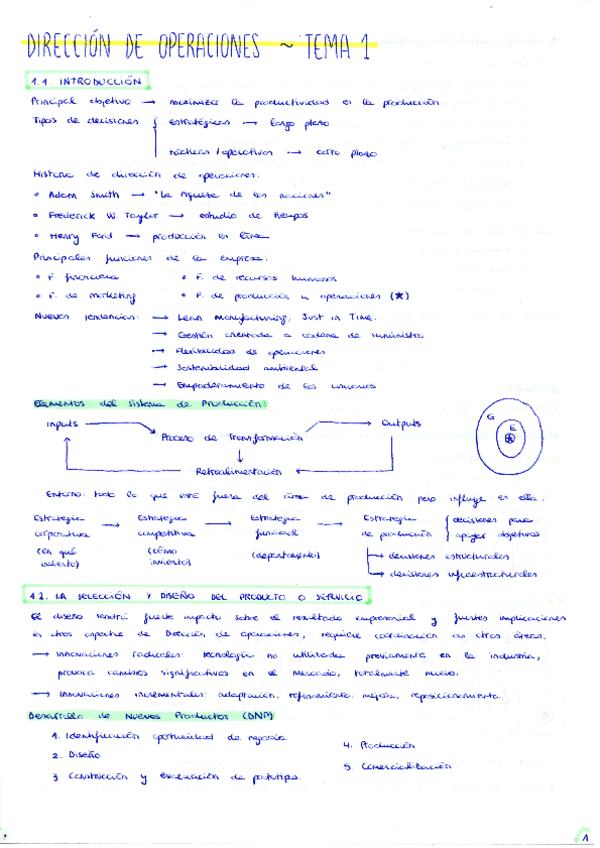 DIRECCIÓN DE OPERACIONES ~ TEMA 1
1.1 INTRODUCCIÓN
Principal objetivo → maximizar la productividad en la producción.
Tipos de decisiones { estratégicas → largo plazo
tácticas / operativos → corto plazo
Historia de dirección de operaciones:
• Adam Smith → "La riqueza de las naciones"
• Frederick W. Taylor → estudio de tiempos
• Henry Ford → producción en línea
Principales funciones de la empresa:
• F. financiera • F. de recursos humanos
• F. de marketing • F. de producción u operaciones (★)
Nuevas tendencias: → Lean Manufacturing, Just in Time.
→ Gestión orientada a cadena de suministro
→ Flexibilidad de operaciones
→ Sostenibilidad ambiental
→ Empoderamiento de los usuarios
Elementos del Sistema de Producción:
Inputs → Proceso de Transformación → Outputs
Retroalimentación
G
E
Entorno: todo lo que está fuera del área de producción pero influye en ella.
Estrategia corporativa (en qué invierto) → Estrategia competitiva (cómo invierto) → Estrategia funcional (departamento) → Estrategia de producción { decisiones para apoyar objetivos
→ decisiones estructurales
→ decisiones infraestructurales
1.2. LA SELECCIÓN Y DISEÑO DEL PRODUCTO O SERVICIO
El diseño tendrá fuerte impacto sobre el resultado empresarial y fuertes implicaciones
en otros aspectos de Dirección de operaciones, requiere coordinación con otras áreas.
→ Innovaciones radicales: tecnología no utilizada previamente en la industria,
provoca cambios significativos en el mercado, totalmente nuevo.
→ Innovaciones incrementales: adaptación, refinamiento, mejora, reposicionamiento.
Desarrollo de Nuevos Productos (DNP)
1. Identificación oportunidad de negocio
2. Diseño
3. Construcción y evaluación de prototipos.
4. Producción
5. Comercialización
1